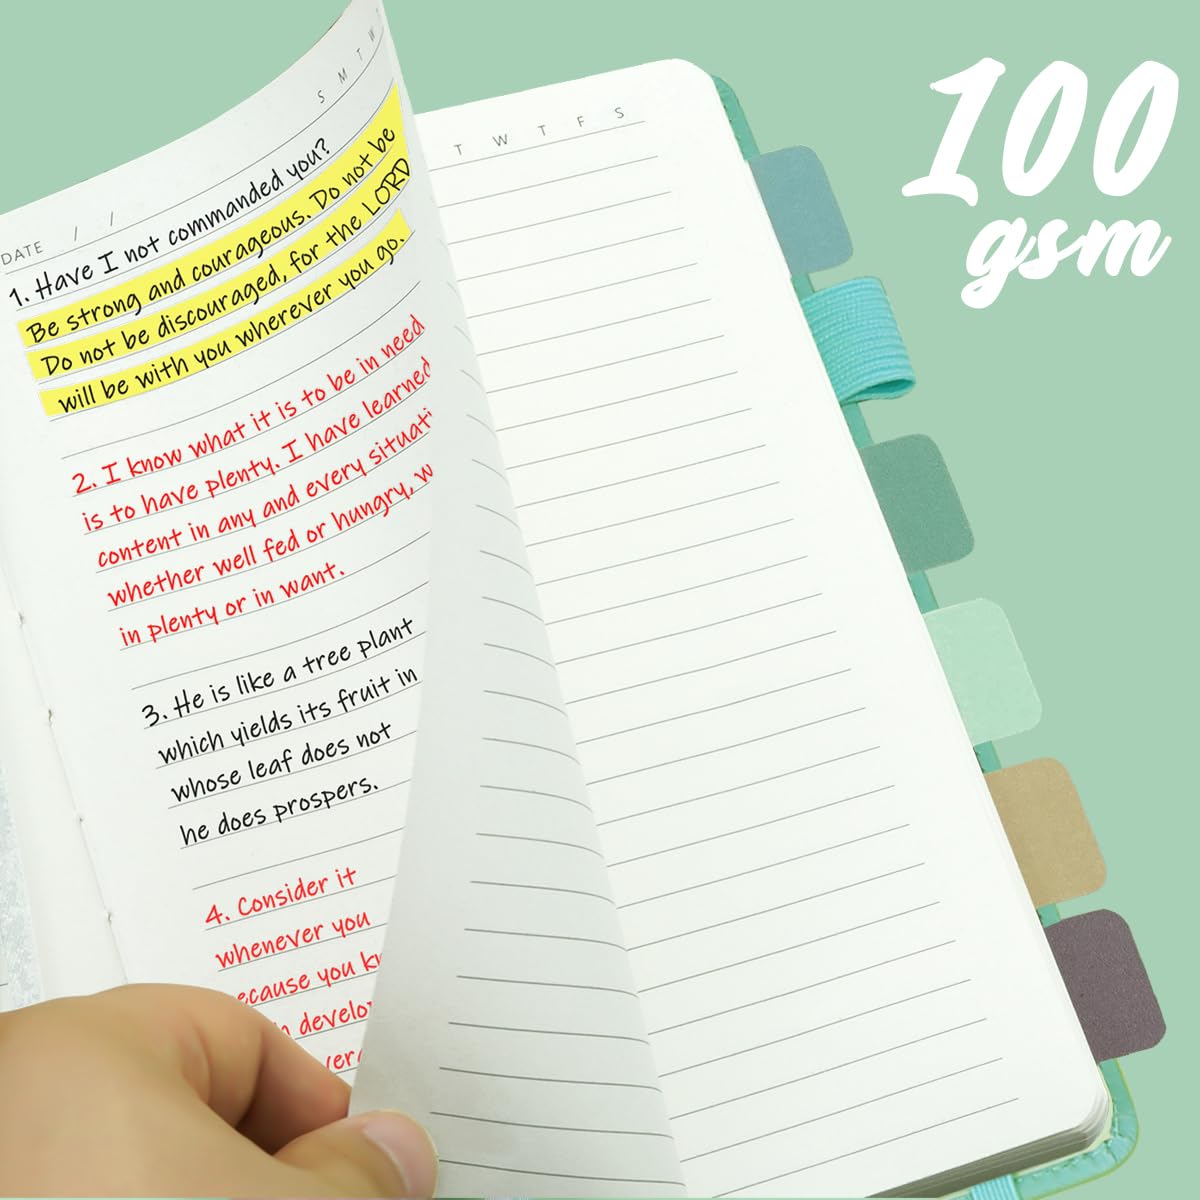 100
gsm
S M T W
DATE / /
1. Have I not commanded you?
Be strong and courageous. Do not be
Do not be discouraged, for the LORD
will be with you wherever you go.
2. I know what it is to be in need
is to have plenty. I have learned
content in any and every situati
whether well fed or hungry, w
in plenty or in want.
3. He is like a tree plant
which yields its fruit in
whose leaf does not
he does prospers.
4. Consider it
whenever you
ecause you kn
develo
T W T F S